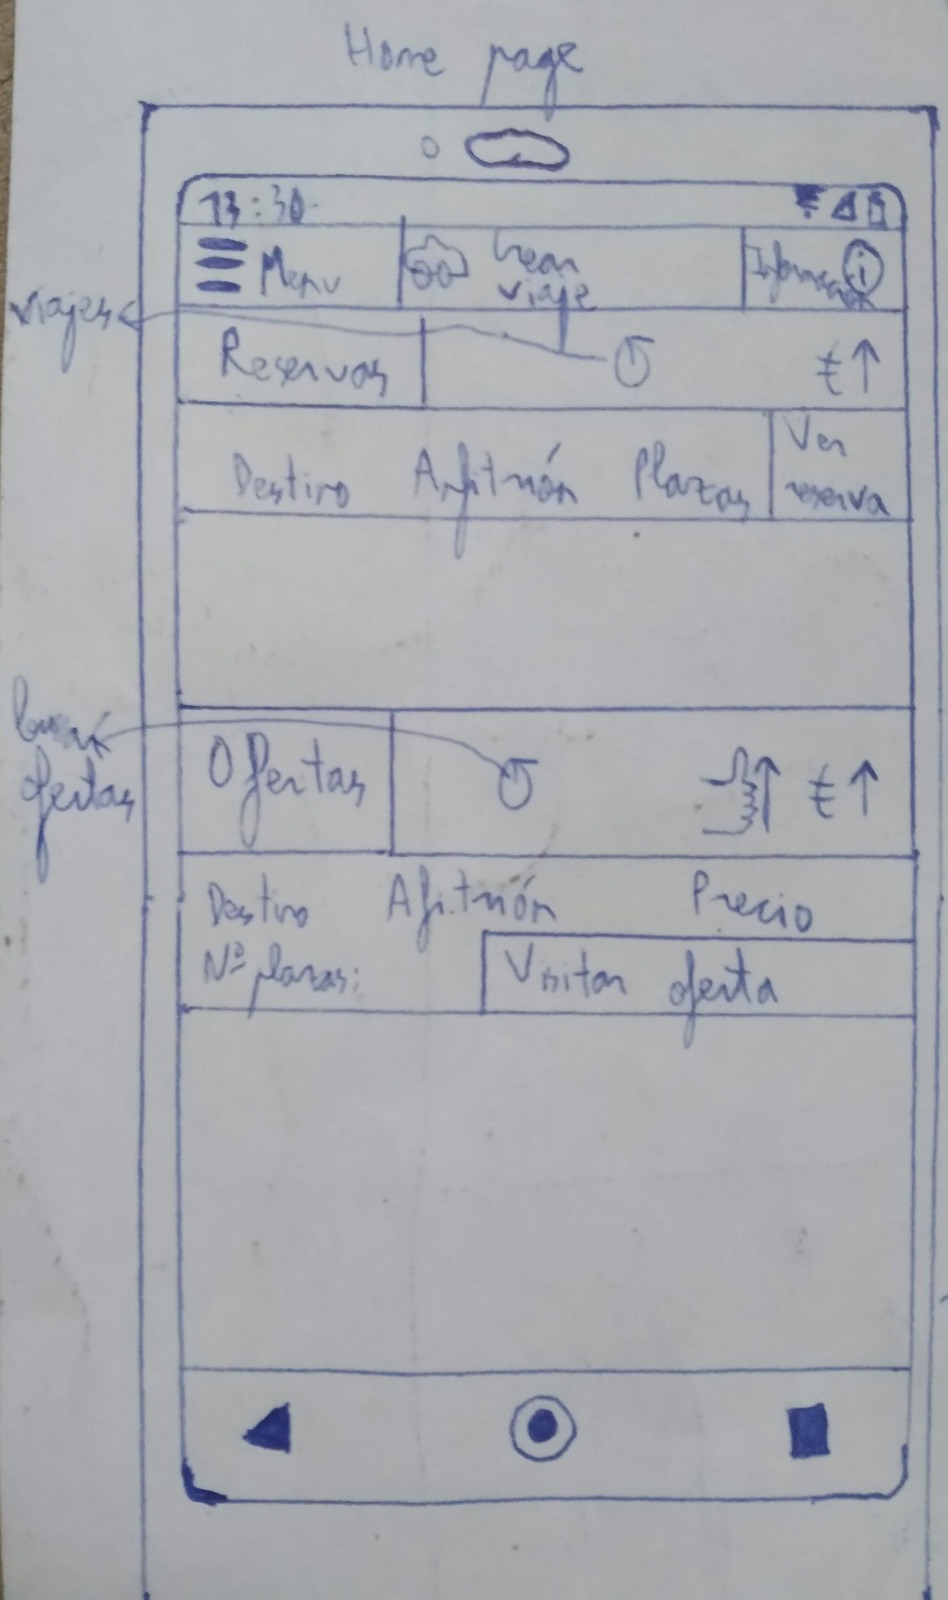 Home page
13:30
Menu
Crear
viaje
Información
viajes
Reservas
€↑
Destino Anfitrión Plazas
Ver
reserva
ofertas
Ofertas
↑ €↑
Destino Afitrión Precio
Nº plazas:
Visitar oferta